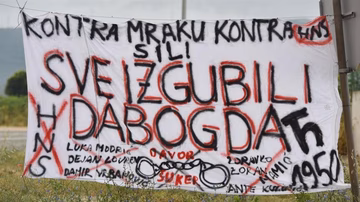 KONTRA MRAKU KONTRA HNS
SILI
SVE IZGUBILI
DABOGDA
HNS
LUKA MODRIĆ
DEJAN LOVREN
DAVOR
ŠUKER
ZDRAVKO
ZORAN
1950